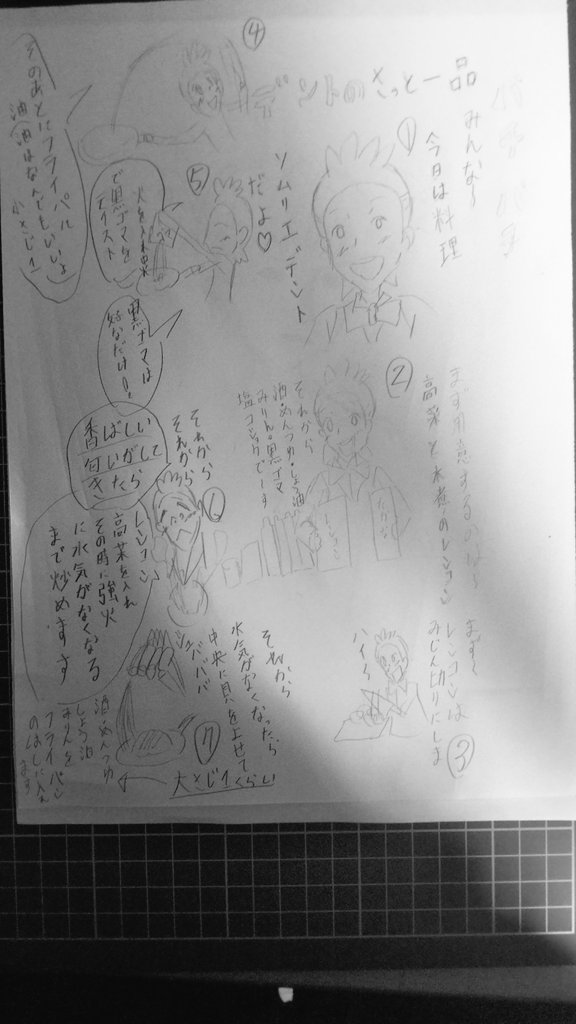 デントのさっと一品
①
みんな〜
今日は料理
ソムリエデント
だよ♡
②
まず用意するのは
高菜と水煮のレンコン
それから
酒・めんつゆ・しょう油
みりん・黒ゴマ
塩コンブでーす
たかな
レンコン
③
まず〜
レンコンは
みじん切りにしま
ハイ〜
④
そのあとにフライパン
油
油はなんでもいいよ
小さじ1
⑤
で黒ゴマを
黒ゴマは
好きなだけ!
香ばしい
匂いがして
きたら
⑥
それから
それから
レンコン
高菜を入れ
その時に強火
に水気がなくなる
まで炒めます
⑦
それから
水気がなくなったら
中央に具を上せて
ジュババババ
大さじ1くらい
酒・めんつゆ
しょう油
みりんを
フライパン
のはしに入れ
ます